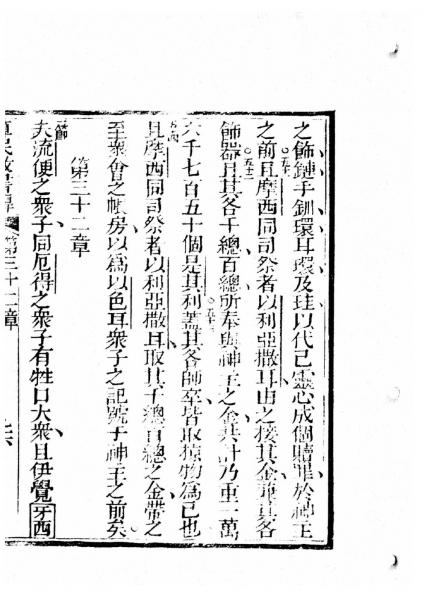 之飾鏈手釧環耳環及珪以代己靈心成個贖罪於神主
之前且摩西同司祭者以利亞撒耳由之接其金其各
飾器且其各千總百總所奉與神主之金共計乃重一萬
六千七百五十個是其利蓋其各師卒皆取掠物為己也
且摩西同司祭者以利亞撒耳取其千總百總之金帶之
至衆會之帳房以爲以色耳衆子之記號于神主之前矣
第三十二章
一節夫流便之衆子同厄得之衆子有牲口大衆且伊覺牙西
民數書傳 第三十二章